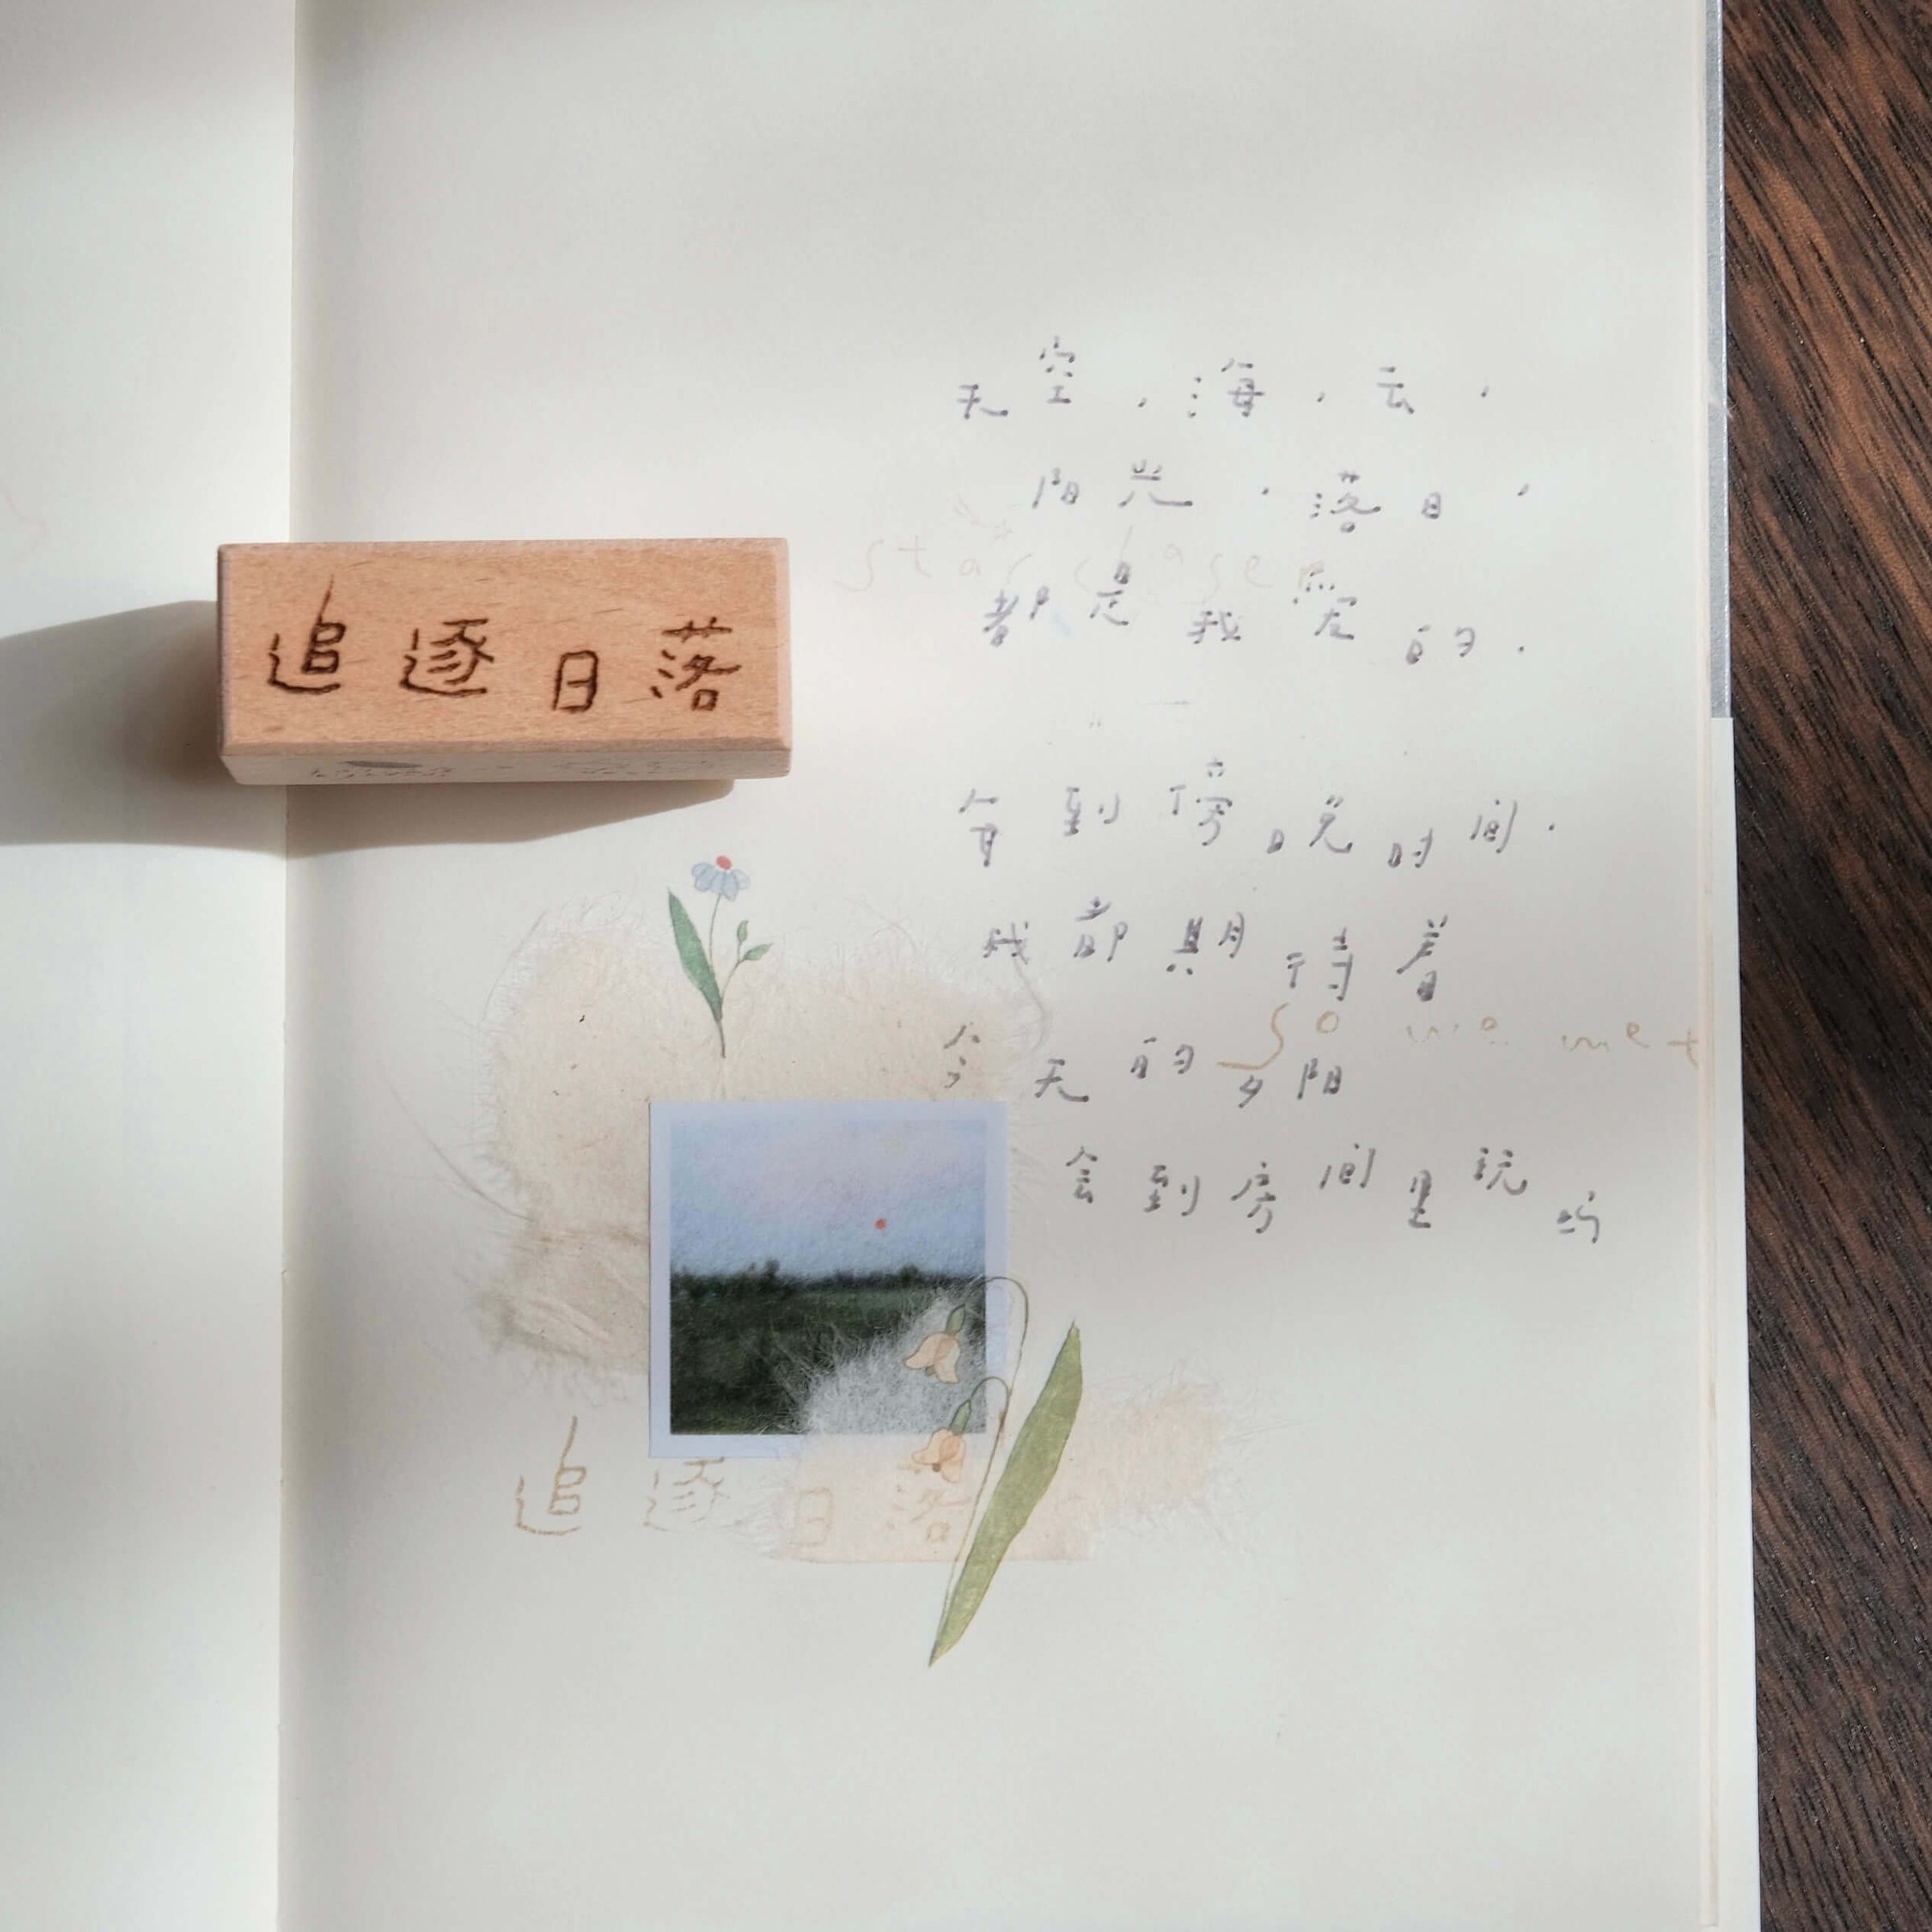 追逐日落
天空，海，云，
阳光，落日，
star chase
都是我爱的.
每到傍晚时间.
我都期待着
so we met
今天的夕阳
会到房间里玩吗
追逐日落